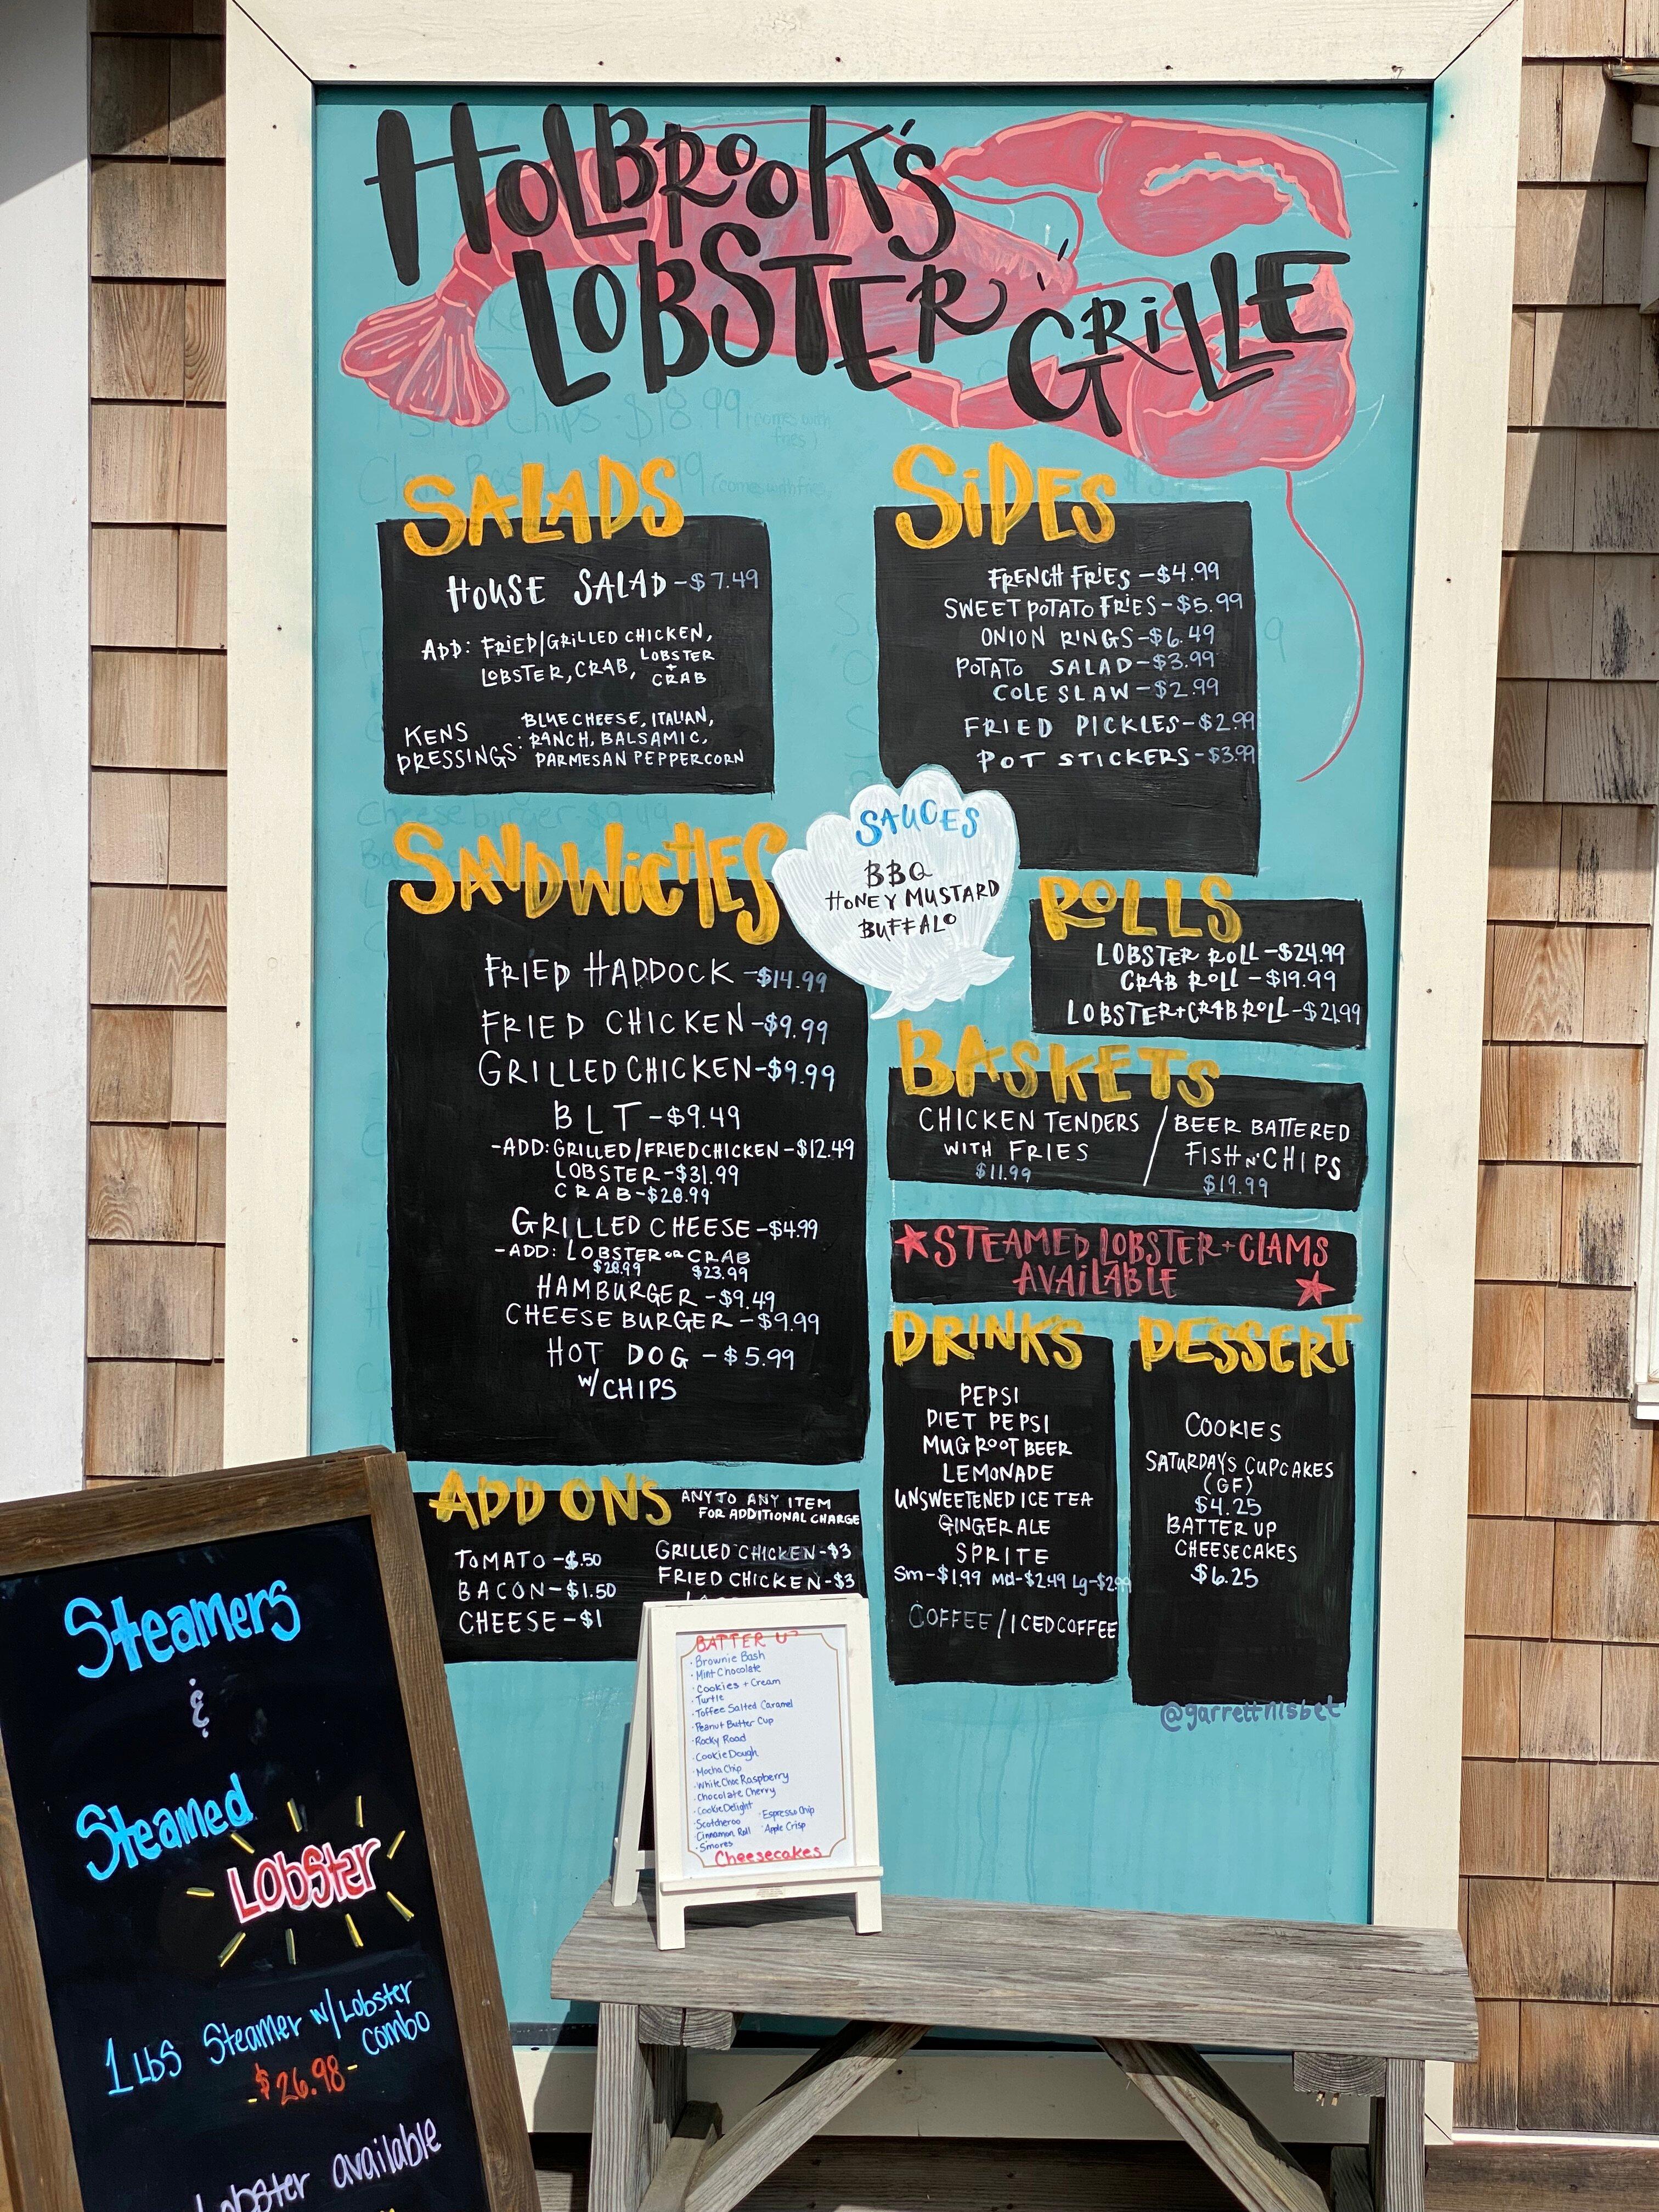 HOLBROOK'S
LOBSTER GRILLE
SALADS
HOUSE SALAD - $7.49
ADD: FRIED/GRILLED CHICKEN,
LOBSTER, CRAB, LOBSTER + CRAB
KENS DRESSINGS: BLUE CHEESE, ITALIAN,
RANCH, BALSAMIC,
PARMESAN PEPPERCORN
SIDES
FRENCH FRIES - $4.99
SWEET POTATO FRIES - $5.99
ONION RINGS - $6.49
POTATO SALAD - $3.99
COLE SLAW - $2.99
FRIED PICKLES - $2.99
POT STICKERS - $3.99
SAUCES
BBQ
HONEY MUSTARD
BUFFALO
SANDWICHES
FRIED HADDOCK - $14.99
FRIED CHICKEN - $9.99
GRILLED CHICKEN - $9.99
BLT - $9.49
-ADD: GRILLED/FRIED CHICKEN - $12.49
LOBSTER - $31.99
CRAB - $28.99
GRILLED CHEESE - $4.99
-ADD: LOBSTER OR CRAB
$28.99 $23.99
HAMBURGER - $9.49
CHEESE BURGER - $9.99
HOT DOG - $5.99
W/ CHIPS
ROLLS
LOBSTER ROLL - $24.99
CRAB ROLL - $19.99
LOBSTER + CRAB ROLL - $21.99
BASKETS
CHICKEN TENDERS
WITH FRIES
$11.99
/
BEER BATTERED
FISH N' CHIPS
$19.99
STEAMED LOBSTER + CLAMS
AVAILABLE
DRINKS
PEPSI
DIET PEPSI
MUG ROOT BEER
LEMONADE
UNSWEETENED ICE TEA
GINGER ALE
SPRITE
Sm - $1.99 Md - $2.49 Lg - $2.99
COFFEE / ICED COFFEE
DESSERT
COOKIES
SATURDAY'S CUPCAKES
(GF)
$4.25
BATTER UP
CHEESECAKES
$6.25
@garrettnisbet
ADD ONS
ANY TO ANY ITEM
FOR ADDITIONAL CHARGE
TOMATO - $.50
BACON - $1.50
CHEESE - $1
GRILLED CHICKEN - $3
FRIED CHICKEN - $3
BATTER UP
· Brownie Bash
· Mint Chocolate
· Cookies + Cream
· Turtle
· Toffee Salted Caramel
· Peanut Butter Cup
· Rocky Road
· Cookie Dough
· Mocha Chip
· White Choc Raspberry
· Chocolate Cherry
· Cookie Delight
· Espresso Chip
· Scotcheroo
· Apple Crisp
· Cinnamon Roll
· Smores
Cheesecakes
Steamers
&
Steamed
LObster
1 Lbs Steamer w/ Lobster
combo
- $26.98 -
Lobster available